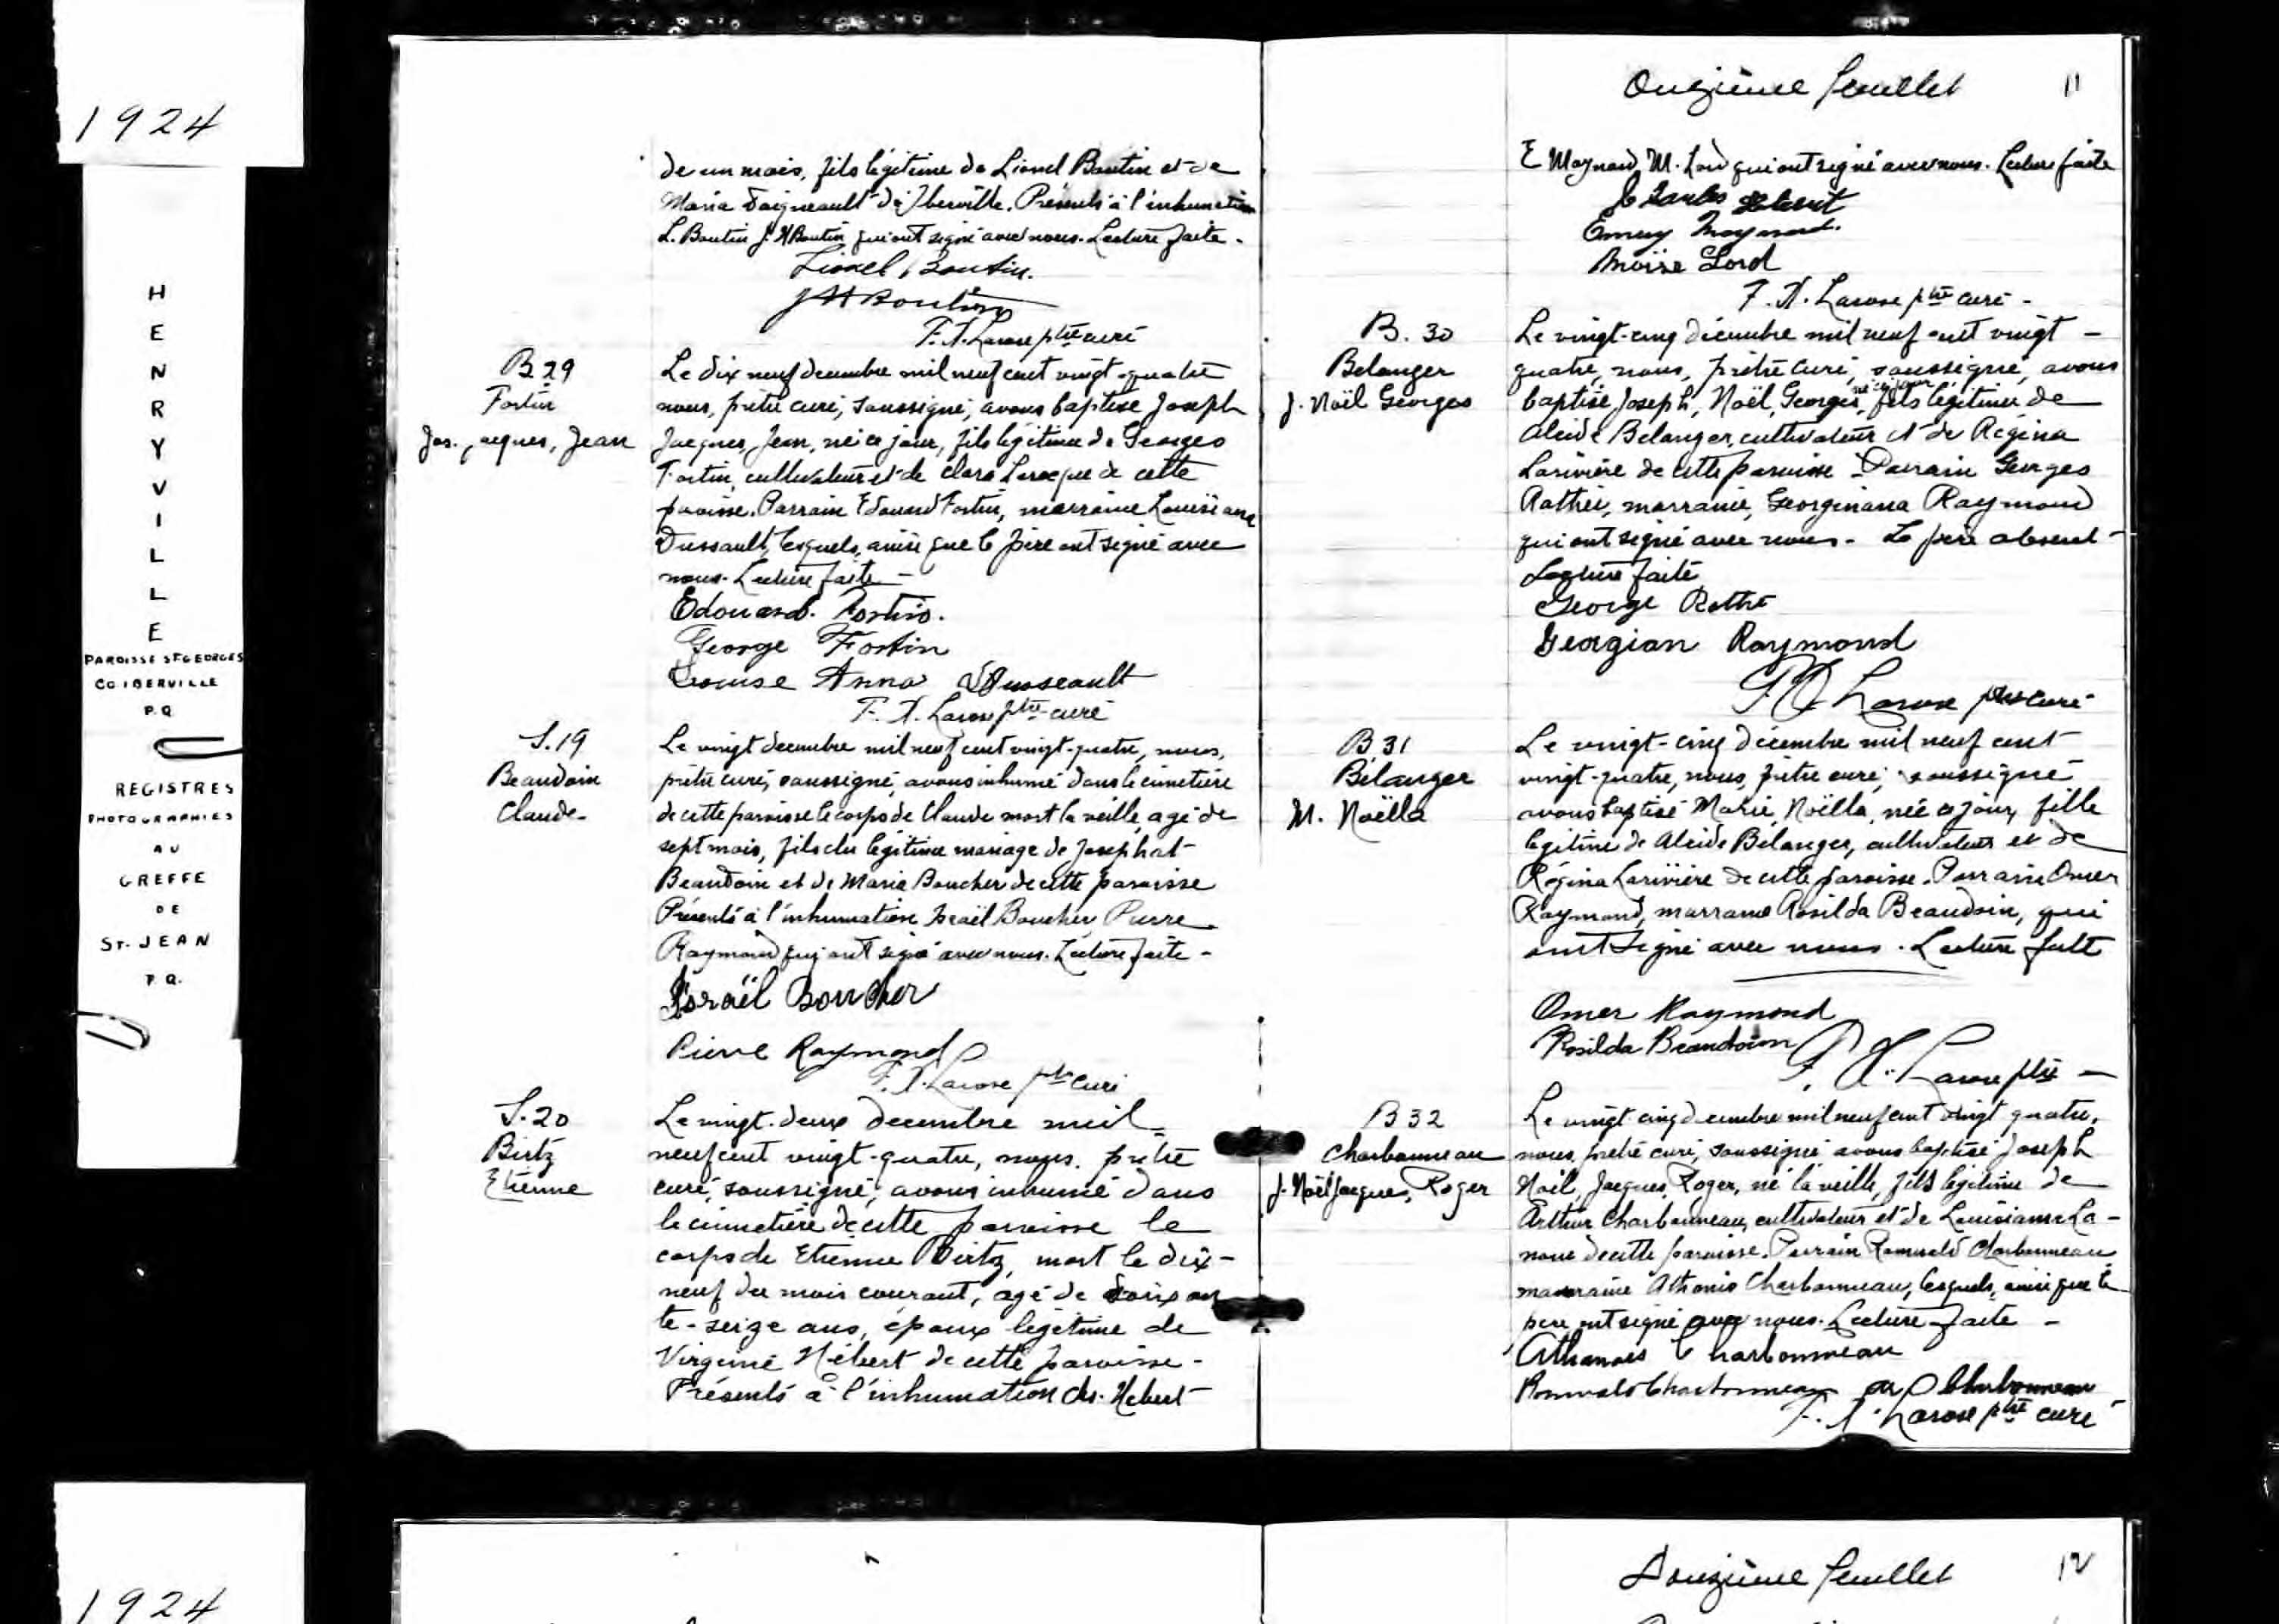 1924
H
E
N
R
Y
V
I
L
L
E
PAROISSE ST GEORGES
CO IBERVILLE
P.Q.
REGISTRES
PHOTOGRAPHIES
AU
GREFFE
DE
ST. JEAN
P.Q.
de un mois, fils légitime de Lionel Boutin et de
Maria Daigneault d'Iberville. Présents à l'inhumation
L. Boutin J. H Boutin qui ont signé avec nous. Lecture faite.
Lionel Boutin.
J H Boutin
F. X. Larose ptre curé
B 29
Fortin
Jos. Jacques, Jean
Le dix neuf decembre mil neuf cent vingt-quatre
nous, prêtre curé, soussigné, avons baptisé Joseph
Jacques, Jean, né ce jour, fils légitime de Georges
Fortin, cultivateur et de Clara Larocque de cette
paroisse. Parrain Edouard Fortin, marraine Louisiana
Dussault, lesquels, ainsi que le père ont signé avec
nous. Lecture faite -
Edouard. Fortin.
George Fortin
Louise Anna Dusseault
F. X. Larose ptre curé
S. 19
Beaudoin
Claude-
Le vingt decembre mil neuf cent vingt-quatre, nous,
prêtre curé, soussigné, avons inhumé dans le cimetière
de cette paroisse le corps de Claude mort la veille, agé de
sept mois, fils du légitime mariage de Josephat
Beaudoin et de Maria Boucher de cette paroisse
Présents à l'inhumation Israël Boucher, Pierre
Raymond qui ont signé avec nous. Lecture faite -
Israël Boucher
Pierre Raymond
F. X. Larose ptre curé
S. 20
Birtz
Etienne
Le vingt-deux decembre mil
neuf cent vingt-quatre, nous, prêtre
curé, soussigné, avons inhumé dans
le cimetière de cette paroisse le
corps de Etienne Birtz, mort le dix-
neuf du mois courant, agé de soixan
te-seize ans, époux légitime de
Virginie Hébert de cette paroisse -
Présents à l'inhumation Chs. Hebert
Onzième feuillet 11
E Maynard M. Lord qui ont signé avec nous. Lecture faite
Charles Hebert
Emery Maynard.
Moïse Lord
F. X. Larose ptre curé -
B. 30
Belanger
J. Noël Georges
Le vingt-cinq décembre mil neuf cent vingt -
quatre, nous, prêtre curé, soussigné, avons
baptisé Joseph, Noël, Georges, né ce jour, fils légitime de
Alcide Belanger, cultivateur et de Régina
Larivière de cette paroisse - Parrain Georges
Rathée, marraine, Georginana Raymond
qui ont signé avec nous - Le père absent -
Lecture faite
George Rathé
Georgian Raymond
F X Larose ptre curé
B 31
Bélanger
M. Noëlla
Le vingt-cinq décembre mil neuf cent
vingt-quatre, nous, prêtre curé, soussigné
avons baptisé Marie, Noëlla, née ce jour, fille
légitime de Alcide Bélanger, cultivateur et de
Régina Larivière de cette paroisse. Parrain Omer
Raymond, marraine Rosilda Beaudoin, qui
ont signé avec nous. Lecture faite
Omer Raymond
Rosilda Beaudoin F. X. Larose ptre -
B 32
Charbonneau
J. Noël Jacques, Roger
Le vingt-cinq decembre mil neuf cent vingt quatre,
nous, prêtré curé, soussigné avons baptisé Joseph
Noël, Jacques, Roger, né la veille, fils légitime de
Arthur Charbonneau, cultivateur et de Louisiana La-
noue de cette paroisse. Parrain Romuald Charbonneau
marraine Athanais Charbonneau, lesquels, ainsi que le
père ont signé avec nous. Lecture faite -
Athanais Charbonneau
Romuald Charbonneau Charbonneau
F. X. Larose ptre curé
1924
Douzième feuillet 12